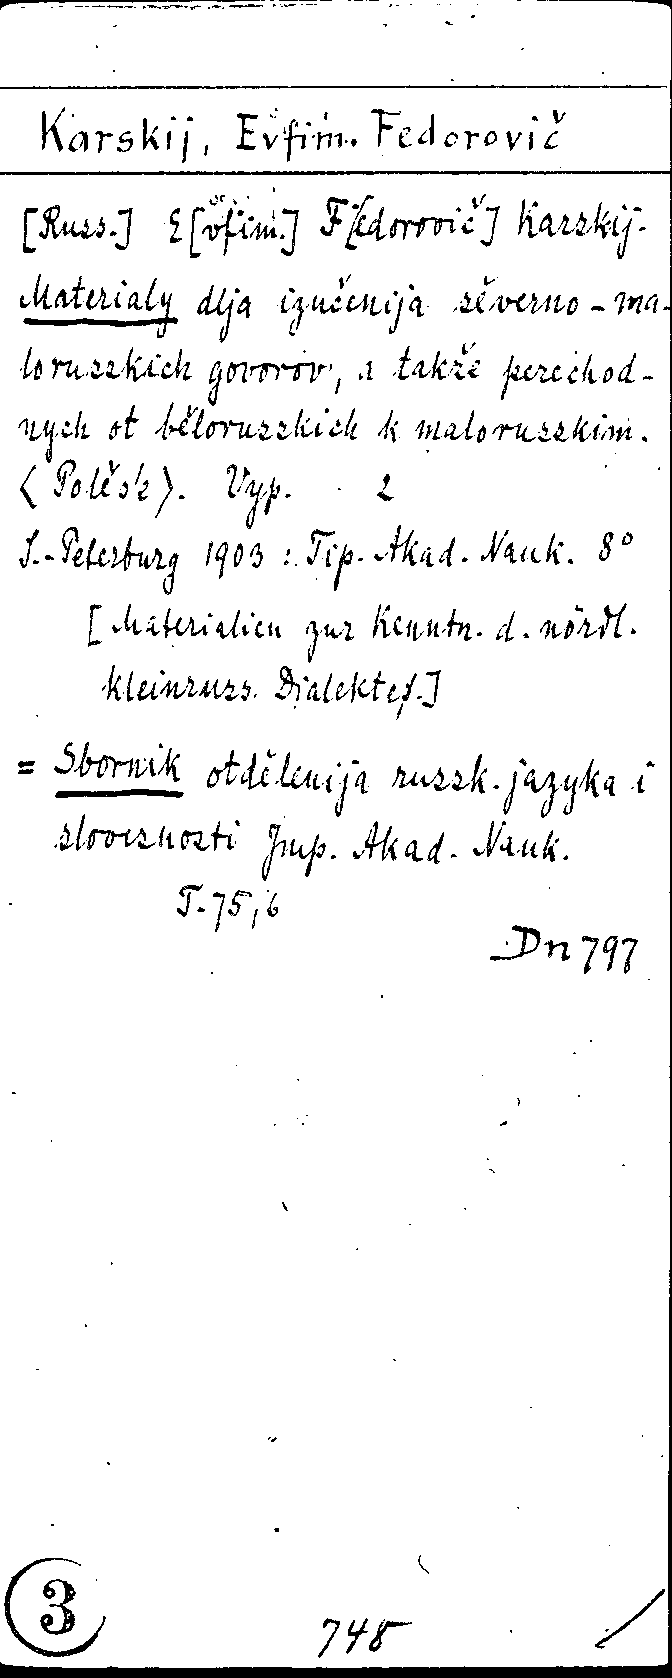 Karskij, Evfim. Fedorovič
[Russ.] E[vfim.] F[edorovič] Karskij.
Materialy dlja izučenija sěverno-ma-
lorusskich govorov, a takže perechod-
nych ot bělorusskich k malorusskim.
⟨Polěsʹe⟩. Vyp. 2
S.-Peterburg 1903: Tip. Akad. Nauk. 8°
[Materialien zur Kenntn. d. nördl.
kleinruss. Dialektes.]
= Sbornik otdělenija russk. jazyka i
slovesnosti Imp. Akad. Nauk.
T. 75,6
Dn 797
3
748